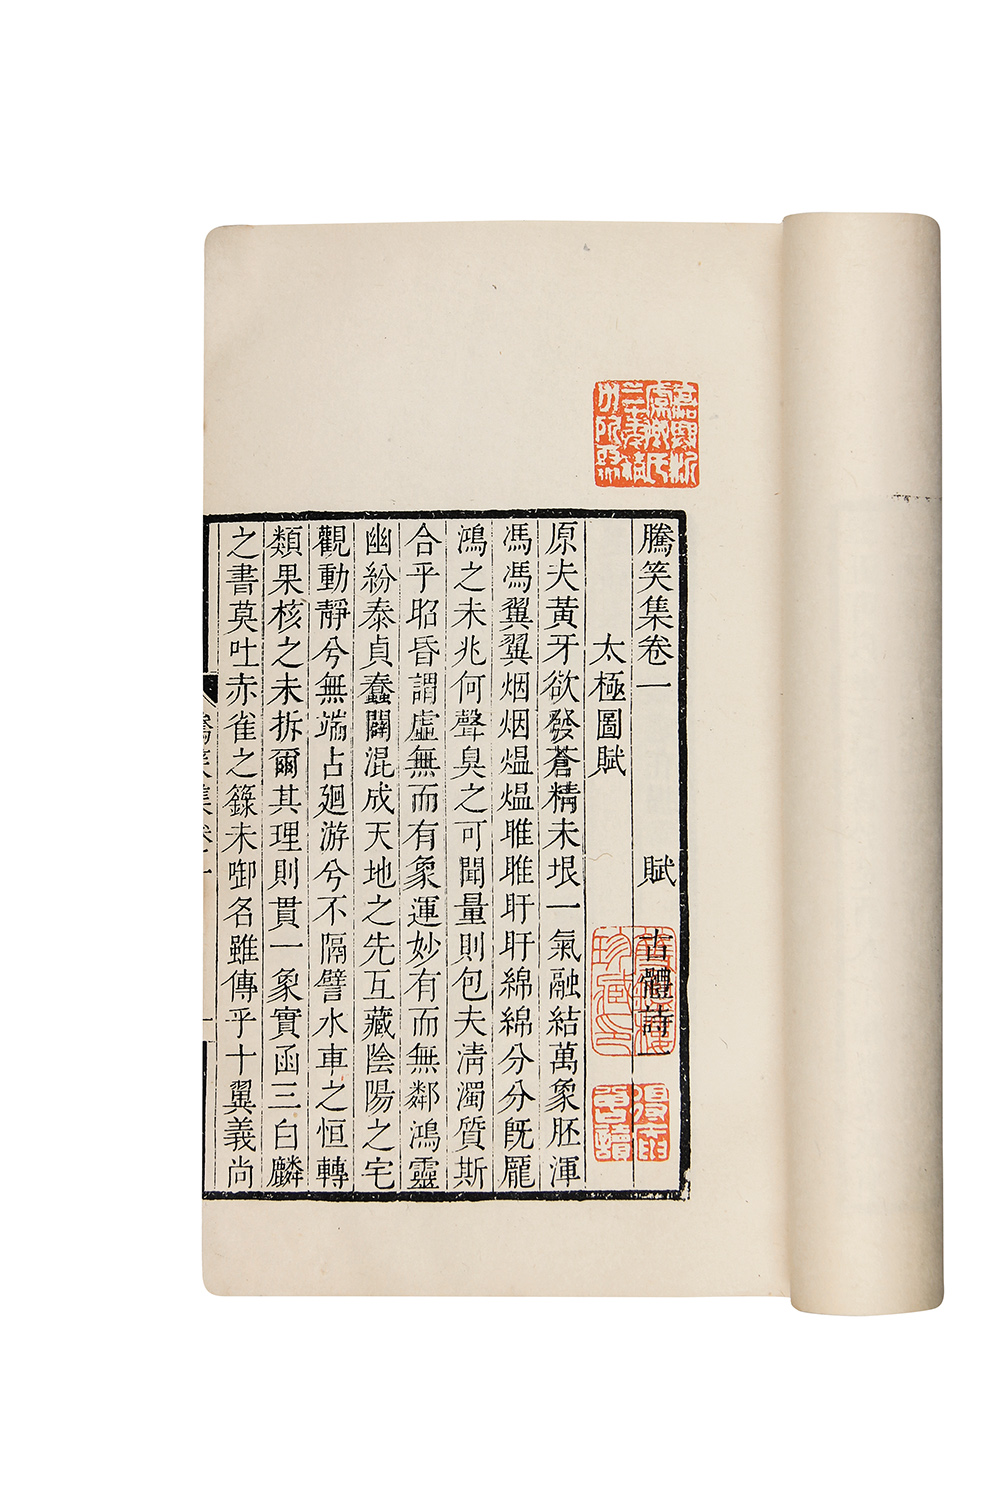 騰笑集卷一　賦　古體詩一
太極圖賦
原夫黃牙欲發蒼精未垠一氣融結萬象胚渾
馮馮翼翼烟烟熅熅睢睢盱盱綿綿分分旣厖
鴻之未兆何聲臭之可聞量則包夫淸濁質斯
合乎昭昏謂虛無而有象運妙有而無鄰鴻靈
幽紛泰貞蠢闢混成天地之先互藏陰陽之宅
觀動靜兮無端占廻游兮不隔譬水車之恒轉
類果核之未拆爾其理則貫一象實函三白麟
之書莫吐赤雀之籙未啣名雖傳乎十翼義尚
騰笑集卷一